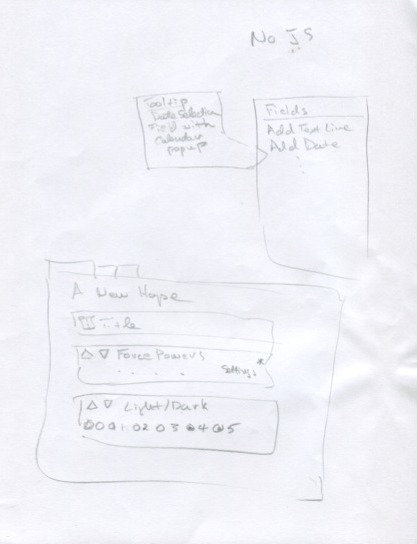 No JS
Tooltip
Date Selection
Field with
Calendar
popup
Fields
Add Text Line
Add Date
A New Hope
Title
Force Powers
Settings
Light/Dark
0 0 1 0 2 0 3 4 5